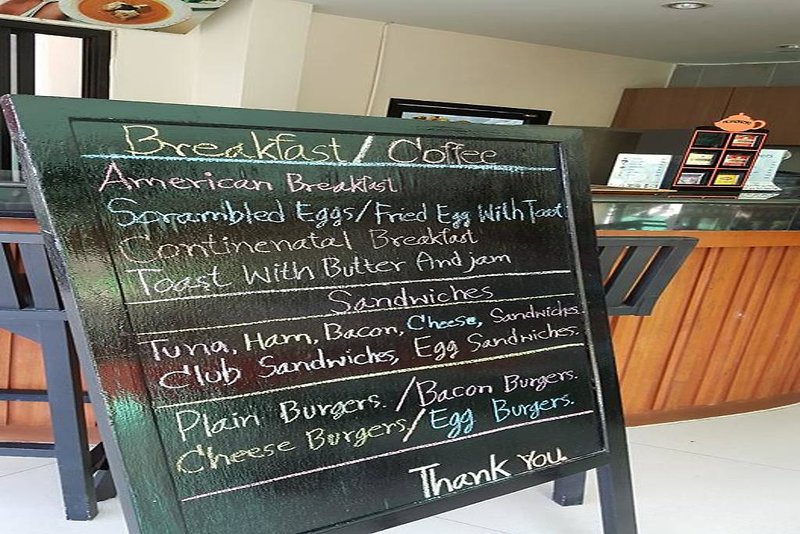 Breakfast/Coffee
American Breakfast
Scrambled Eggs/Fried Egg With Toast
Continenatal Breakfast
Toast With Butter And jam
Sandwiches
Tuna, Ham, Bacon, Cheese, Sandwiches.
Club Sandwiches, Egg Sandwiches.
Plain Burgers./Bacon Burgers.
Cheese Burgers/Egg Burgers.
Thank You.